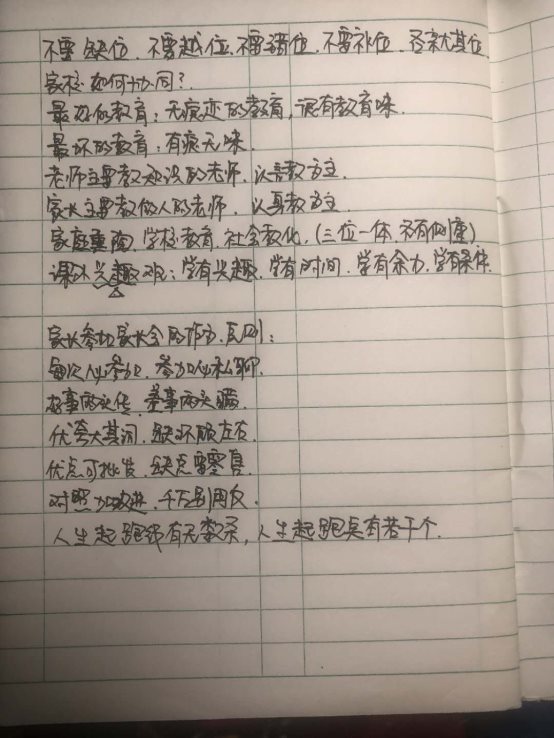 不要缺位、不要越位、不要错位、不要补位、各就其位
家校如何协同?
最好的教育:无痕迹的教育,没有教育味.
最坏的教育:有痕无味.
老师主要教知识的老师,以言教为主.
家长主要教做人的老师,以身教为主.
家庭熏陶,学校教育,社会教化,(三位一体,各有侧重)
课外兴趣班:学有兴趣,学有时间,学有余力,学有条件.
家长参加家长会的作为、原则:
每次必参加,参加必私聊.
好事两头传,差事两头瞒.
优会大其词,缺环顾左右.
优点可批发,缺点要零售.
对照加改进,千万别用反.
人生起跑线有无数条,人生起跑点有若干个.